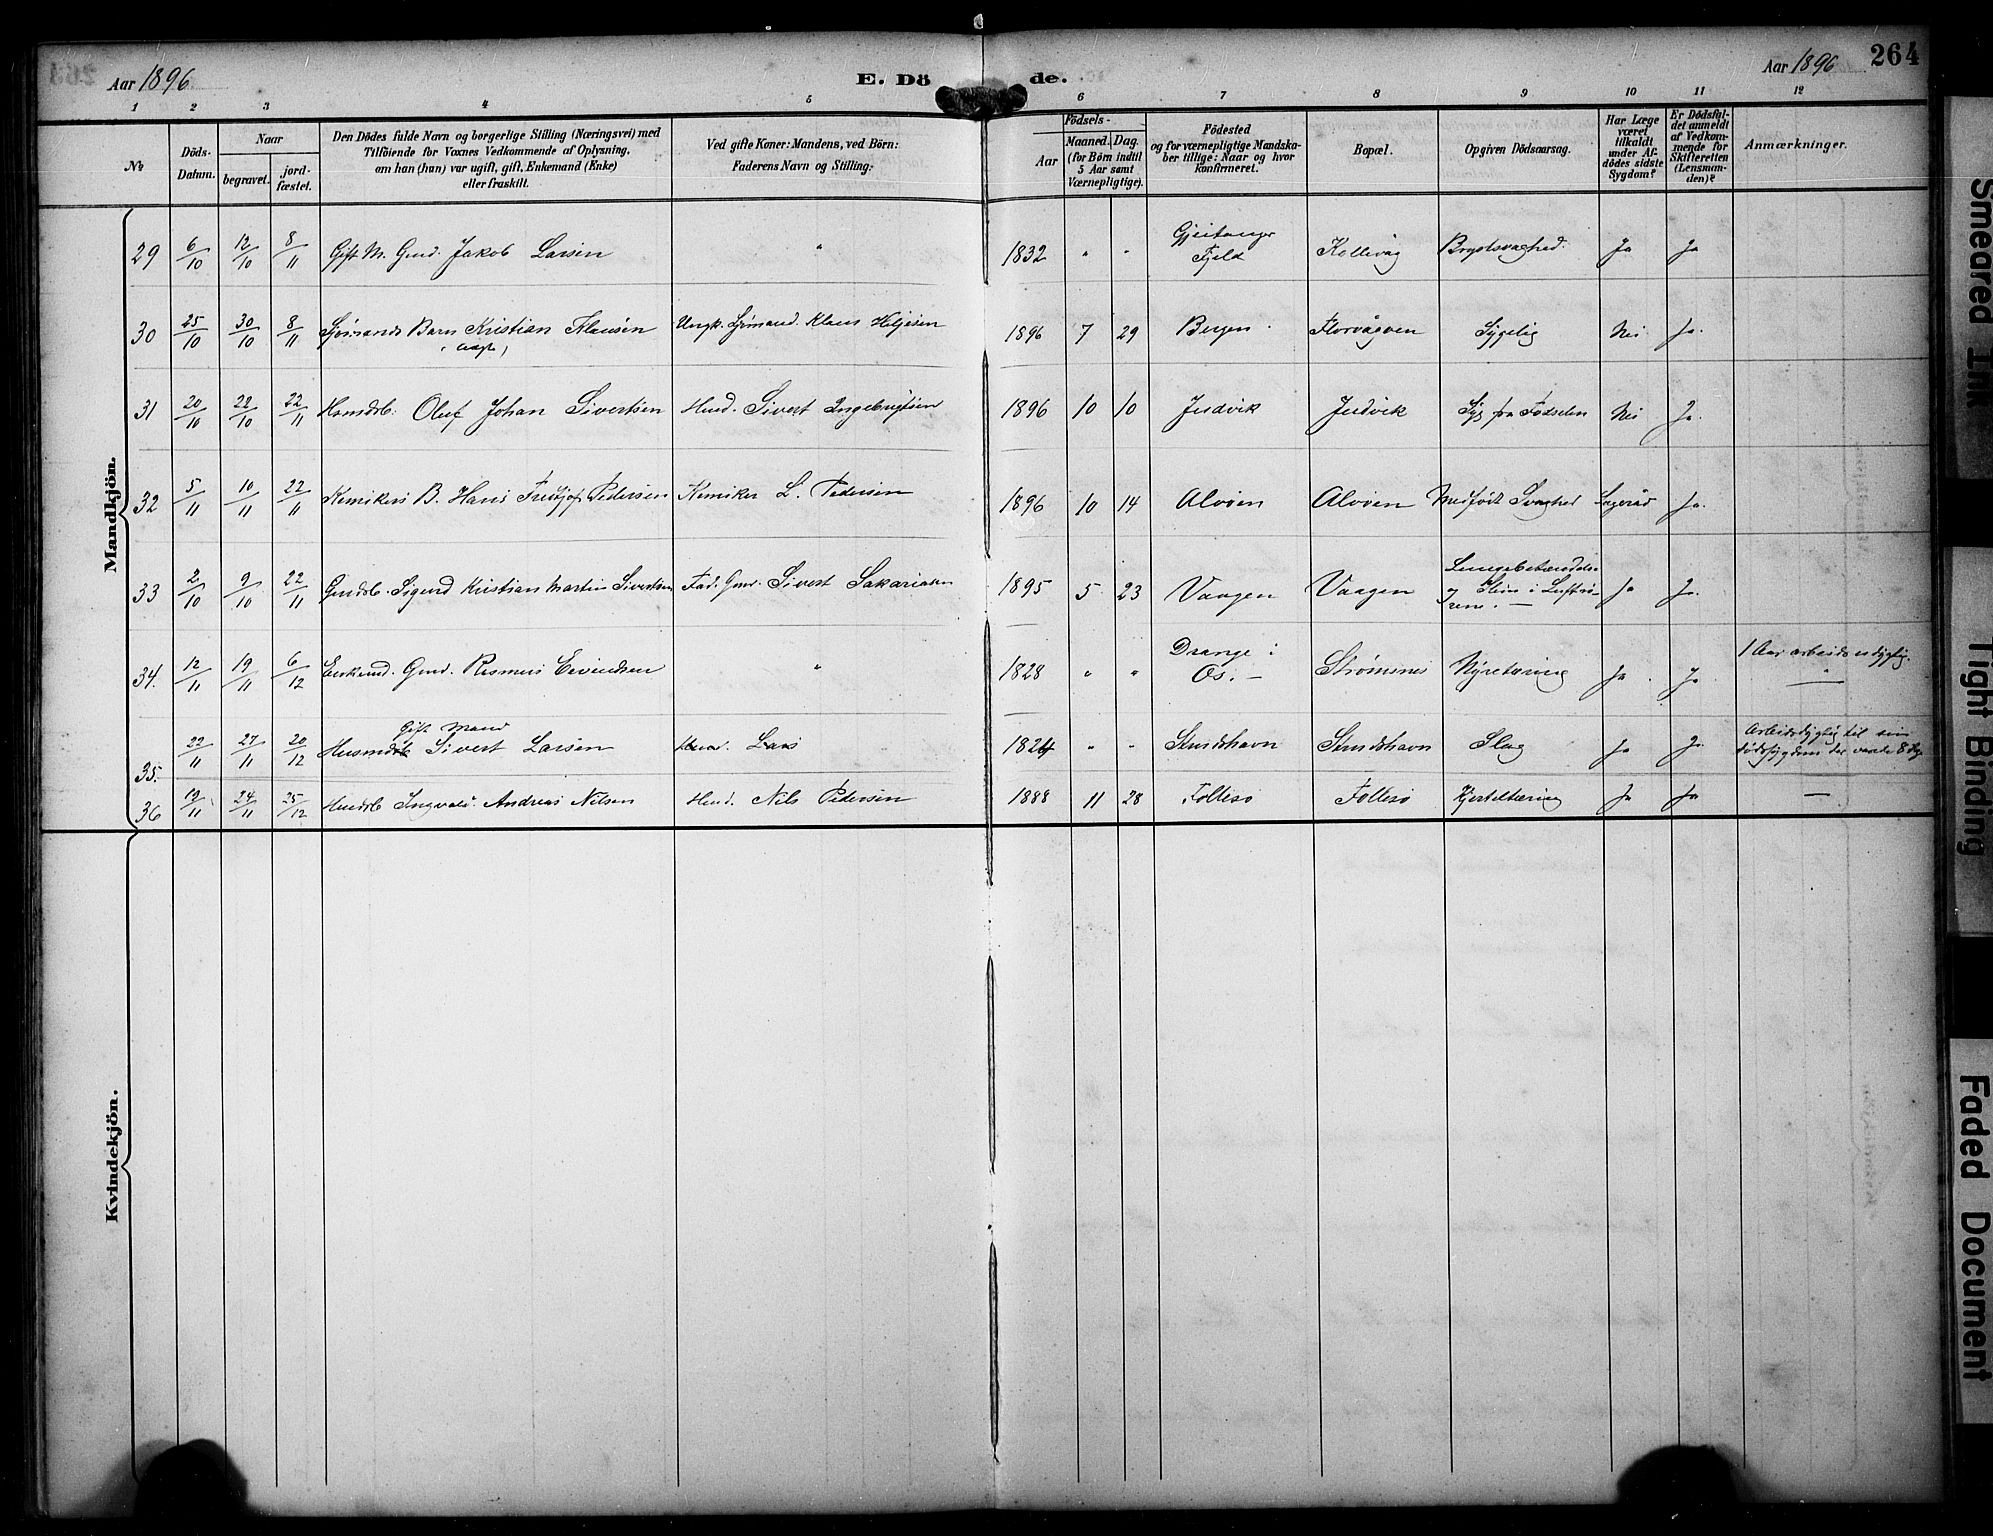 Aar 1896
E. Dö de.
Aar 1896
264
1 2 3 4 5 6 7 8 9 10 11 12
No
Döds-Datum.
Naar
begravet.
jord-fæstet.
Den Dödes fulde Navn og borgerlige Stilling (Næringsvei) med
Tilföiende for Voxnes Vedkommende af Oplysning,
om han (hun) var ugift, gift, Enkemand (Enke)
eller fraskilt.
Ved gifte Koner: Mandens, ved Börn:
Faderens Navn og Stilling:
Födsels-
Aar
Maaned. Dag.
(for Börn indtil
5 Aar samt
Værnepligtige).
Födested
og for værnepligtige Mandska-
ber tillige: Naar og hvor
konfirmeret.
Bopæl.
Opgiven Dödsaarsag.
Har Læge
været
tilkaldt
under Af-
dödes sidste
Sygdom?
Er Dödsfal-
det anmeldt
af Vedkom-
mende for
Skifteretten
(Lensman-
den)?
Anmærkninger.
Mandkjön.
29 6/10 12/10 8/11 Gift M. Gmd. Jakob Larsen " 1832 " " Gjeitanger Fjeld Kollevåg Brystsvaghed. Ja Ja
30 25/10 30/10 8/11 Sjömands Barn Kristian Klausen Ungk. Sjömand. Klaus Heljesen 1896 7 29 Bergen Florvågøen Sygelig Nei Ja.
31 20/10 22/10 22/11 Hsmdsb. Oluf Johan Sivertsen Hmd. Sivert Ingebrigtsen 1896 10 10 Judvik Judvik Syg fra Fødselen Nei Ja.
32 5/11 10/11 22/11 Kemikers B. Hans Fredtjof Pedersen Kemiker L. Pedersen 1896 10 14 Alvöen Alvöen Medfödt Svaghed Ja.
33 2/10 9/10 22/11 Gmdsb. Sigurd Kristian Martin Sivertsen Fad. Gmd. Sivert Sakariasen 1895 5 23 Vaagen Vaagen Lungebetændelse
og Slim i Luftrö-
rene. Ja Ja.
34. 12/11 19/11 6/12 Enkemd. Gmd. Rasmus Eivindsen " 1828 " " Drange i
Os. Strömsnes Nyretæring Ja Ja 1 Aar arbeidsudygtig.
Gift Mand
35. 22/11 27/11 20/12 Husmdsb Sivert Larsen Lars 1824 " " Strudshavn Strudshavn Slag Ja Ja. Arbeidsdygtig til sin
dødssygdom der varede 8 Dg.
36 19/11 24/11 25/12 Hmdsb Ingvald Andreas Nilsen Hmd. Nils Petersen 1888 11 28 Follesö Follesö Kjerteltæring Ja Ja —
Kvindekjön.
Smeared Ink
Tight Binding
Faded Document